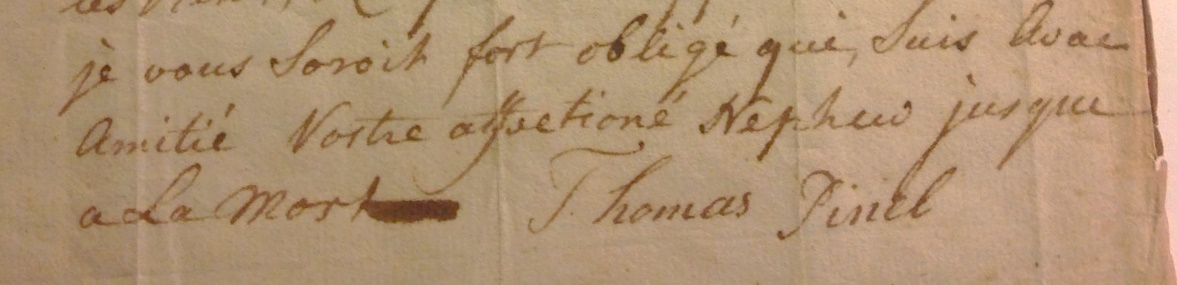 je vous Soroit fort obligé que, Suis Avac
Amitié Vostre affectioné Nepheu jusque
a La Mort Thomas Pinel